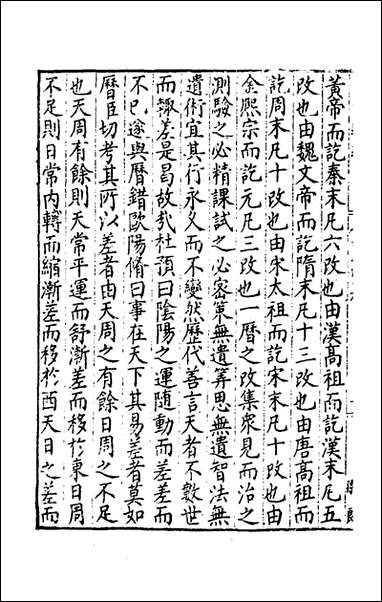 黃帝而訖秦末凡六改也由漢高祖而訖漢末凡五
改也由魏文帝而訖隋末凡十三改也由唐高祖而
訖周末凡十改也由宋太祖而訖宋末凡十改也由
金熙宗而訖元凡三改也一曆之改集衆見而治之
測驗之必精課試之必密策無遺筭思無遺智法無
遺術宜其行永乂而不變然歷代善言天者不數世
而輙差是曷故㢤杜預曰陰陽之運隨動而差差而
不已遂與曆錯歐陽脩曰事在天下其易差者莫如
曆臣切考其所以差者由天周之有餘日周之不足
也天周有餘則天常平運而舒漸差而移於東日周
不足則日常内轉而縮漸差而移於西天日之差而